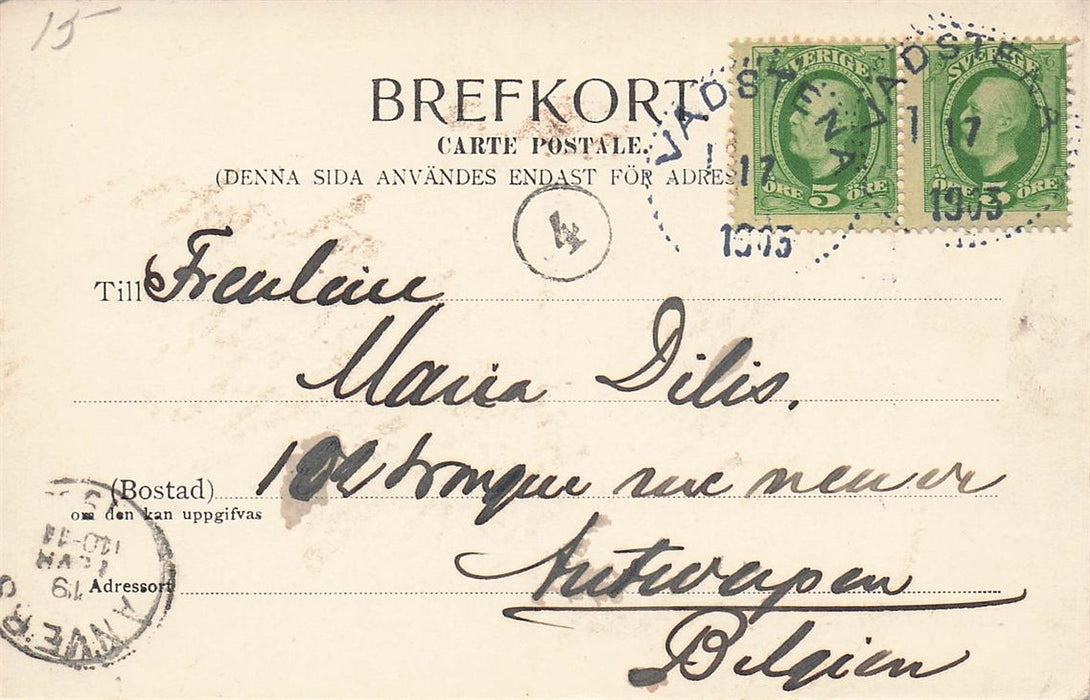 15
BREFKORT
CARTE POSTALE.
(DENNA SIDA ANVÄNDES ENDAST FÖR ADRES
SVERIGE
ÖRE 5 ÖRE
SVERIGE
ÖRE 5 ÖRE
VADSTENA
1 17
1903
VADSTENA
1 17
1903
4
Till Freulein
Maria Dilis.
(Bostad) 102 longue rue neuve
om den kan uppgifvas
Antwerpen
Adressort
Belgien
ANVERS
19
JANV
10-11